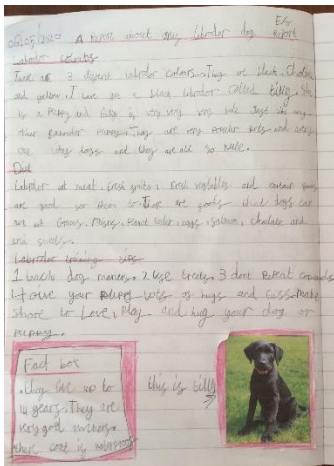 A report about my labrador dog
report
Labrador
There are 3 different labrador colours. They are black, chocolate
and yellow. I have got a black labrador called Billy. She
is a puppy and Billy is very very very cute just like any
other labrador puppy. They are very popular pets and
dogs and they are all so cute.
Diet
Labrador eat meat, fresh fruits, fresh vegtables and
are good for them to. There are foods which dogs can
not eat Grapes, Raisins, eggs, salmon, choclate and
sweets.
Labrador training tips
1 teach dog maners. 2 Use treats. 3 dont repeat comands
4 Give your puppy lots of hugs and make
shore to Love, Play and hug your dog or
puppy.
Fact box
they live up to
14 years. They are
very good swimers.
there coat is waterproof
this is billy